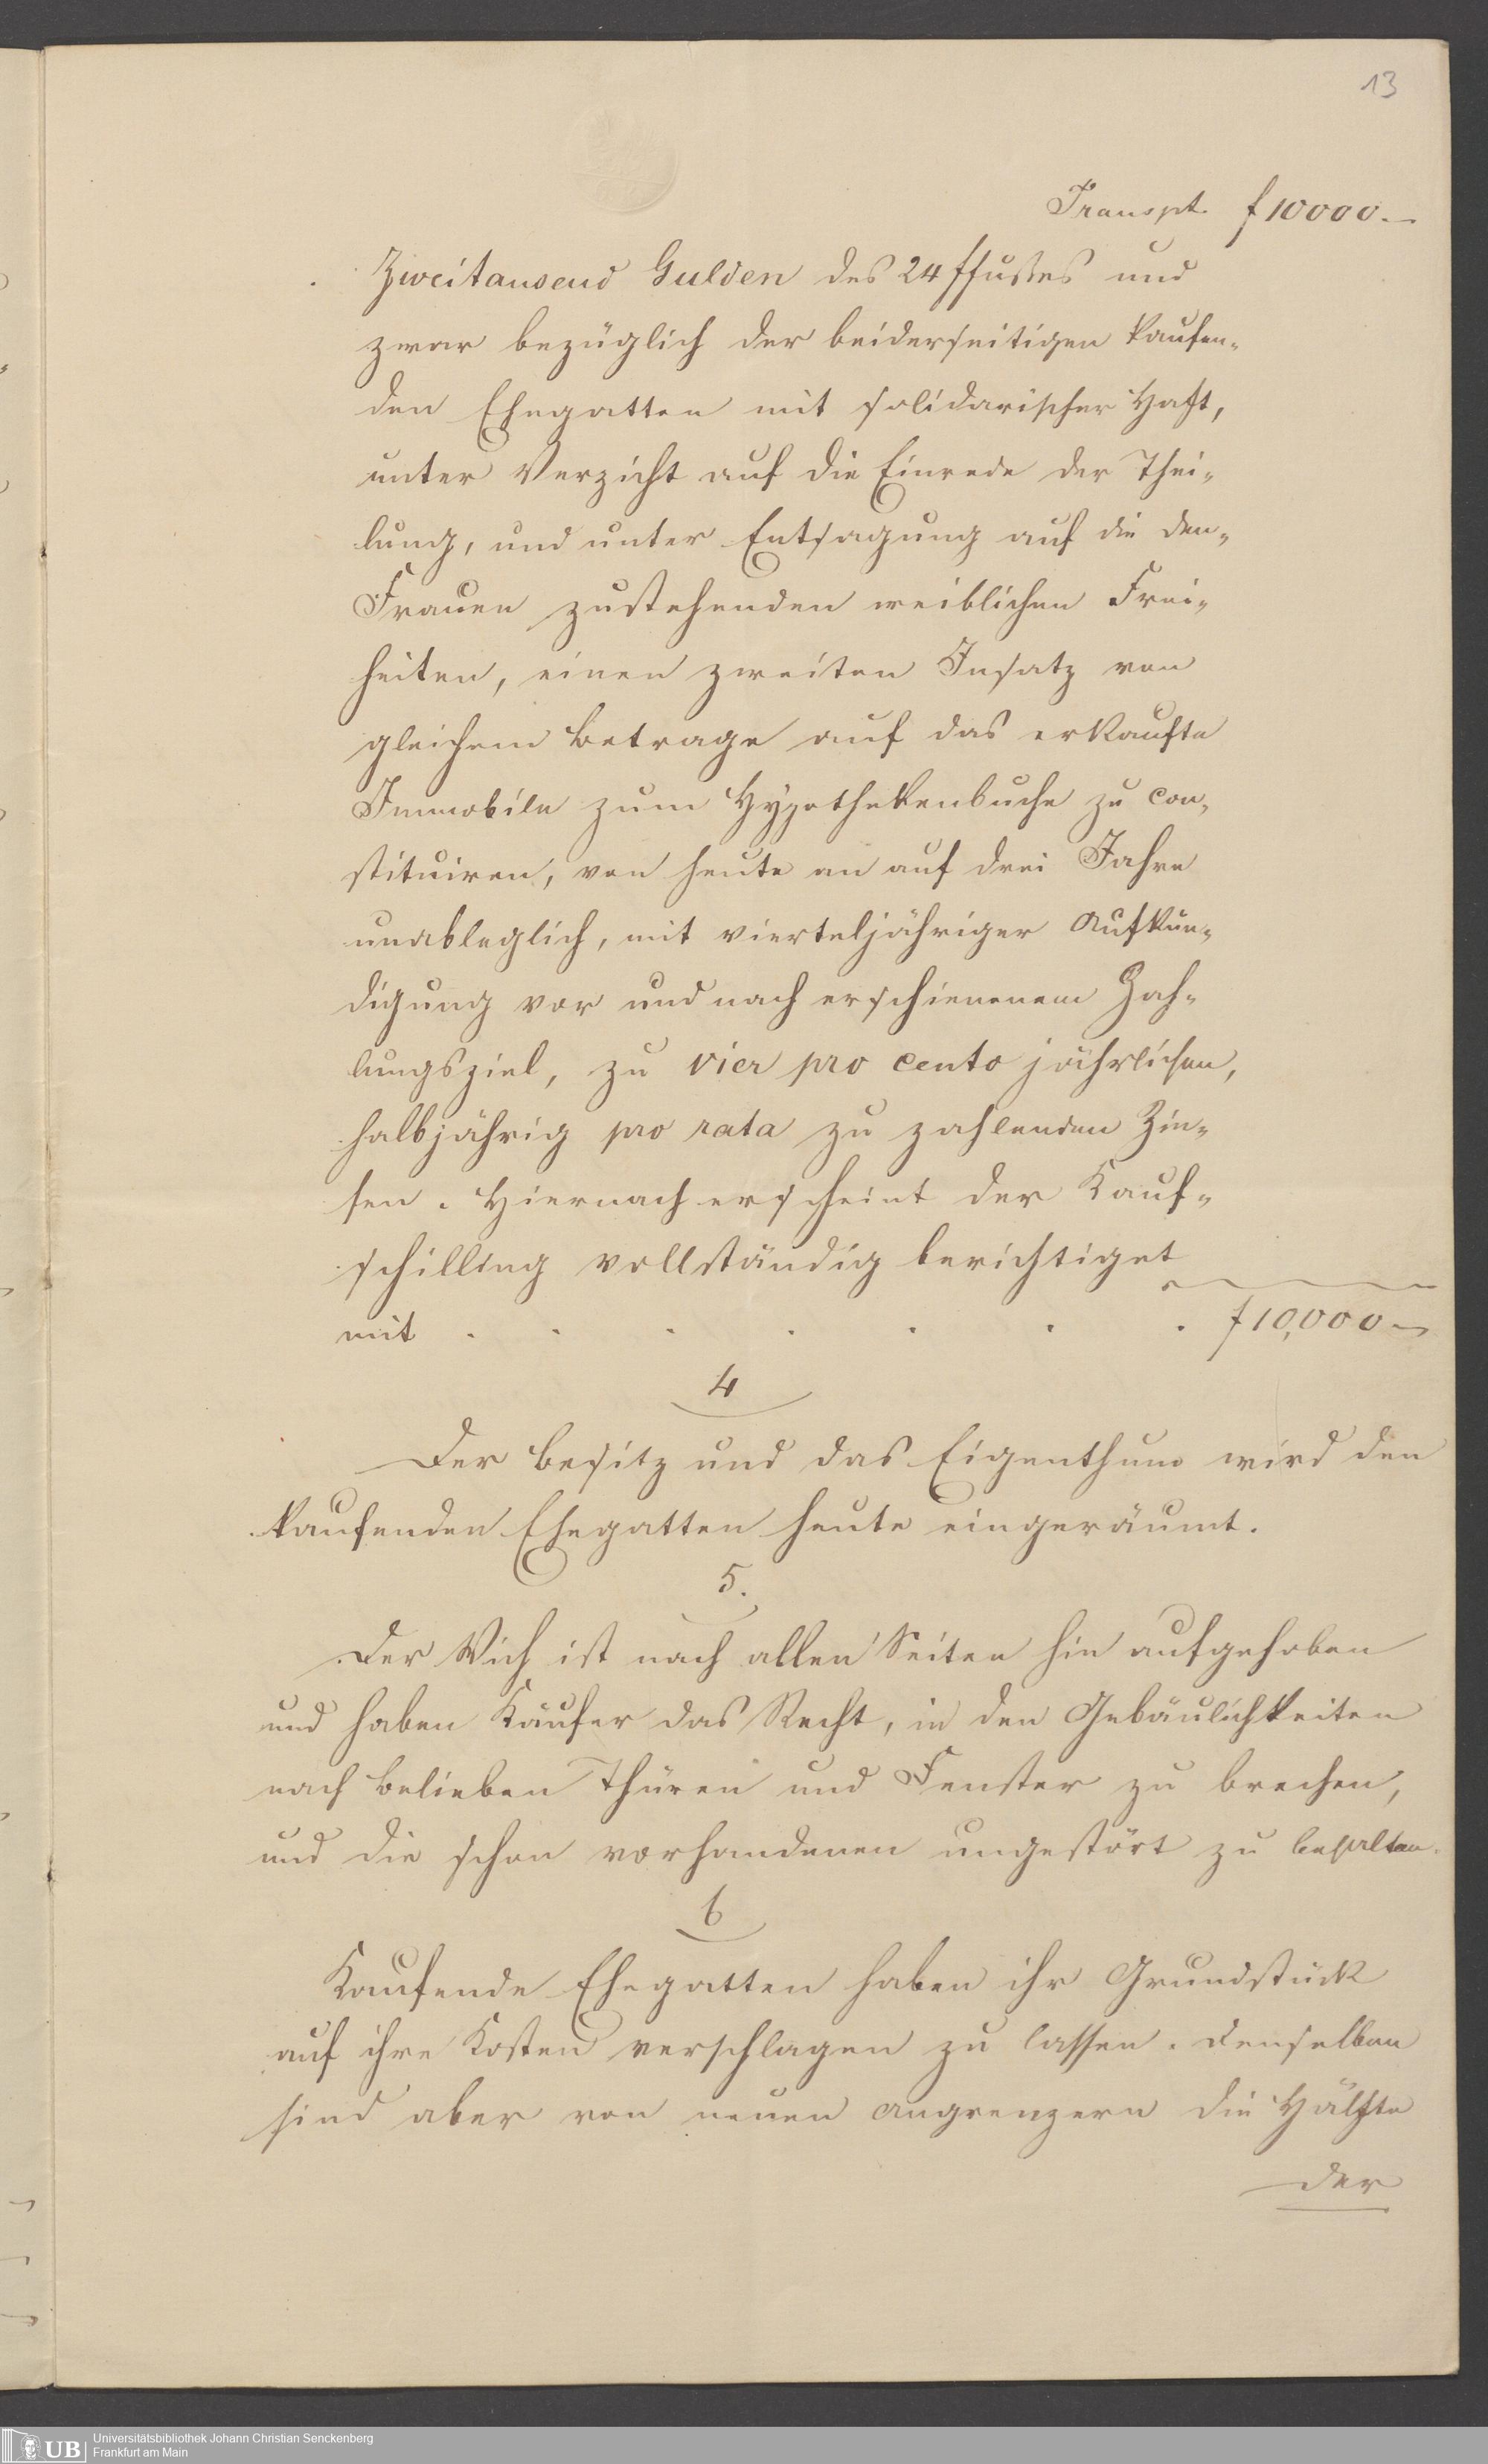 13
Transpt. f 10000.—
Zweitausend Gulden des 24 ffußes und
zwar bezüglich der beiderseitigen kaufen-
den Ehegatten mit solidarischer Haft,
unter Verzicht auf die Einrede der Thei-
lung, und unter Entsagung auf die den-
Frauen zustehenden weiblichen Frei-
heiten, einen zweiten Insatz von
gleichem Betrage auf das erkaufte
Immobile zum Hypothekenbuche zu con-
stituiren, von heute an auf drei Jahre
unableglich, mit vierteljähriger Aufkün-
digung vor und nach erschienenem Zah-
lungsziel, zu vier pro cento jährlichen,
halbjährig pro rata zu zahlenden Zin-
sen. Hiernach erscheint der Kauf-
schilling vollständig berichtiget
mit . . . . . . . f 10,000—
4
Der Besitz und das Eigenthum wird den
kaufenden Ehegatten heute eingeräumt.
5.
Der Wich ist nach allen Seiten hin aufgehoben
und haben Käufer das Recht, in den Gebäulichkeiten
nach Belieben Thüren und Fenster zu brechen,
und die schon vorhandenen ungestört zu behalten.
6
Kaufende Ehegatten haben ihr Grundstück
auf ihre Kosten verschlagen zu lassen. Denselben
sind aber von neuen Angrenzern die Hälfte
der
UB
Universitätsbibliothek Johann Christian Senckenberg
Frankfurt am Main